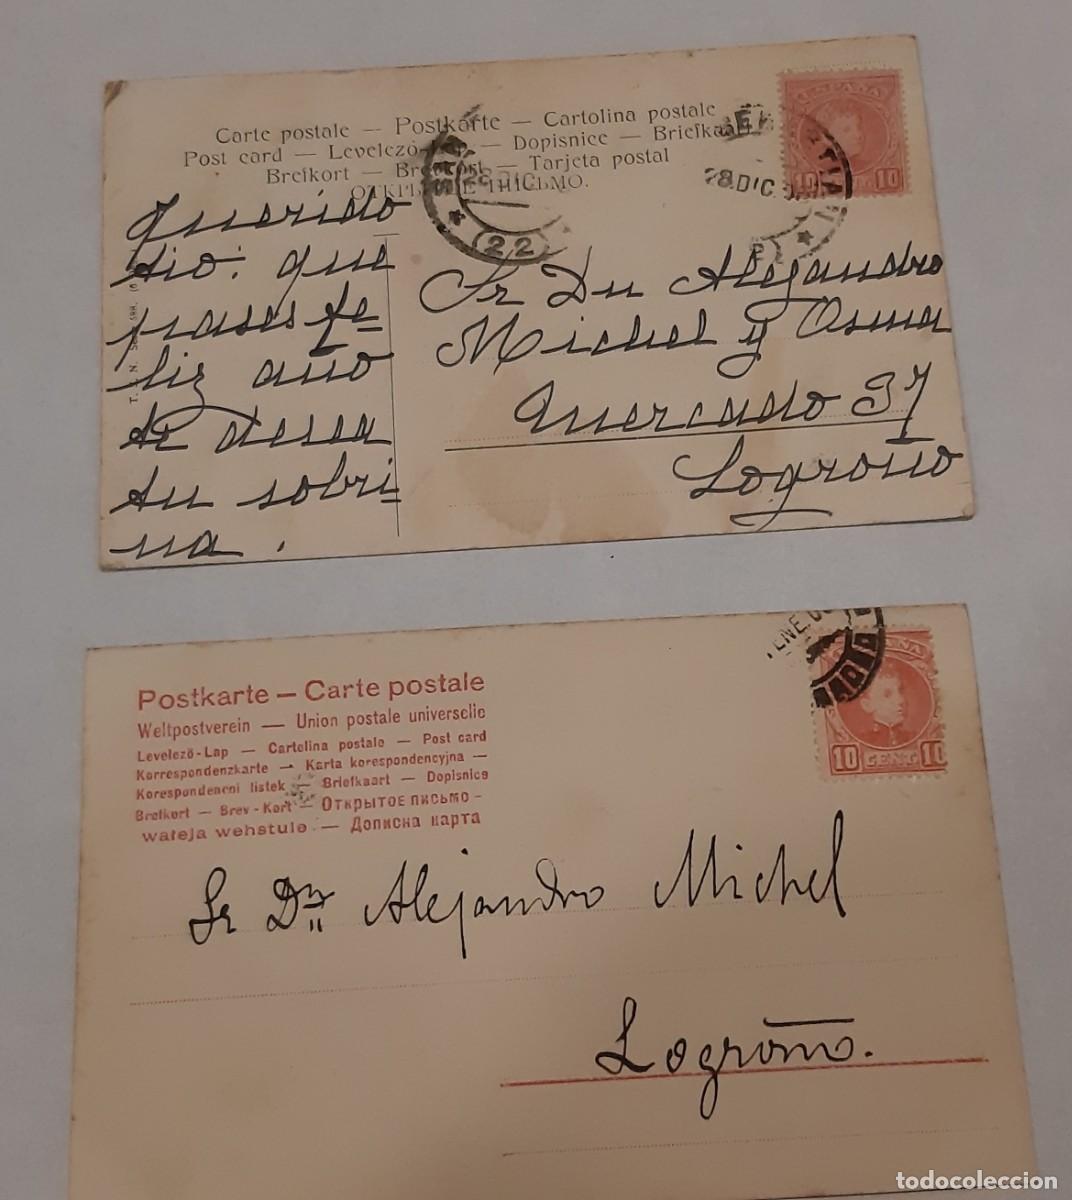 Carte postale — Postkarte — Cartolina postale
Post card — Levelező-Lap — Dopisnice — Briefkaart
Brefkort — Brevkort — Tarjeta postal
ОТКРЫТОЕ ПИСЬМО.
ESPAÑA
10 10
28 DIC
(22)
Querido
tio: que
pases fe=
liz año
te desea
tu sobri=
na.
Sr Dn Alejandro
Michel y Osma
Mercado 37
Logroño
Postkarte — Carte postale
Weltpostverein — Union postale universelle
Levelező-Lap — Cartolina postale — Post card
Korrespondenzkarte — Karta korespondencyjna —
Korespondencni listek — Briefkaart — Dopisnice
Brefkort — Brev-Kort — Открытое письмо —
wateja wehstule — Дописна карта
ENE.
10 CENT 10
Sr Dn Alejandro Michel
Logroño.
todocoleccion